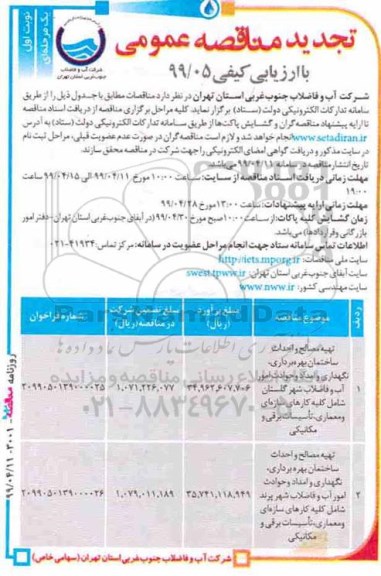 نوبت اول
یک مرحله‌ای
شرکت آب و فاضلاب
جنوب غربی استان تهران
تجدید مناقصه عمومی
با ارزیابی کیفی ۹۹/۰۵
شرکت آب و فاضلاب جنوب غربی استان تهران در نظر دارد مناقصات مطابق با جدول ذیل را از طریق
سامانه تدارکات الکترونیکی دولت (ستاد) برگزار نماید. کلیه مراحل برگزاری مناقصه از دریافت اسناد مناقصه
تا ارایه پیشنهاد مناقصه‌گران و گشایش پاکت‌ها از طریق سامانه تدارکات الکترونیکی دولت (ستاد) به آدرس
www.setadiran.ir انجام خواهد شد و لازم است مناقصه‌گران در صورت عدم عضویت قبلی، مراحل ثبت نام
در سایت مذکور و دریافت گواهی امضای الکترونیکی را جهت شرکت در مناقصه محقق سازند.
تاریخ انتشار مناقصه در سامانه ۹۹/۰۴/۱۱ می‌باشد.
مهلت زمانی دریافت اسناد مناقصه از سایت: ساعت ۱۰:۰۰ مورخ ۹۹/۰۴/۱۱ الی ۹۹/۰۴/۱۵ ساعت
۱۹:۰۰
مهلت زمانی ارایه پیشنهادات: ساعت ۱۳:۰۰ مورخ ۹۹/۰۴/۲۸
زمان گشایش کلیه پاکات: از ساعت ۱۰:۰۰ صبح مورخ ۹۹/۰۴/۳۰ (در آبفای جنوب غربی استان تهران - دفتر امور
بازرگانی و قراردادها) می‌باشد.
اطلاعات تماس سامانه ستاد جهت انجام مراحل عضویت در سامانه: مرکز تماس ۴۱۹۳۴-۰۲۱
سایت ملی مناقصات: http://iets.mporg.ir
سایت آبفای جنوب غربی استان تهران: swest.tpww.ir
سایت مهندسی کشور: www.nww.ir
ردیف
موضوع مناقصه
مبلغ برآورد (ریال)
مبلغ تضمین شرکت در مناقصه (ریال)
شماره فراخوان
۱
تهیه مصالح و احداث
ساختمان بهره برداری،
نگهداری و امداد و حوادث امور
آب و فاضلاب شهر گلستان
شامل کلیه کارهای سازه‌ای
و معماری، تأسیسات برقی و
مکانیکی
۳۴,۹۶۲,۶۰۷,۷۰۶
۱,۰۷۱,۲۲۶,۰۷۷
۲۰۹۹۰۵۰۱۳۹۰۰۰۰۲۵
۲
تهیه مصالح و احداث
ساختمان بهره برداری،
نگهداری و امداد و حوادث
امور آب و فاضلاب شهر پرند
شامل کلیه کارهای سازه‌ای
و معماری، تأسیسات برقی و
مکانیکی
۳۵,۷۴۱,۱۱۸,۹۴۹
۱,۰۷۹,۰۱۱,۱۸۹
۲۰۹۹۰۵۰۱۳۹۰۰۰۰۲۶
شرکت آب و فاضلاب جنوب غربی استان تهران (سهامی خاص)
روزنامه مناقصه ۳۰۰۱ - ۹۹/۰۴/۱۱
۰۲۱-۸۸۳۴۹۶۷۰